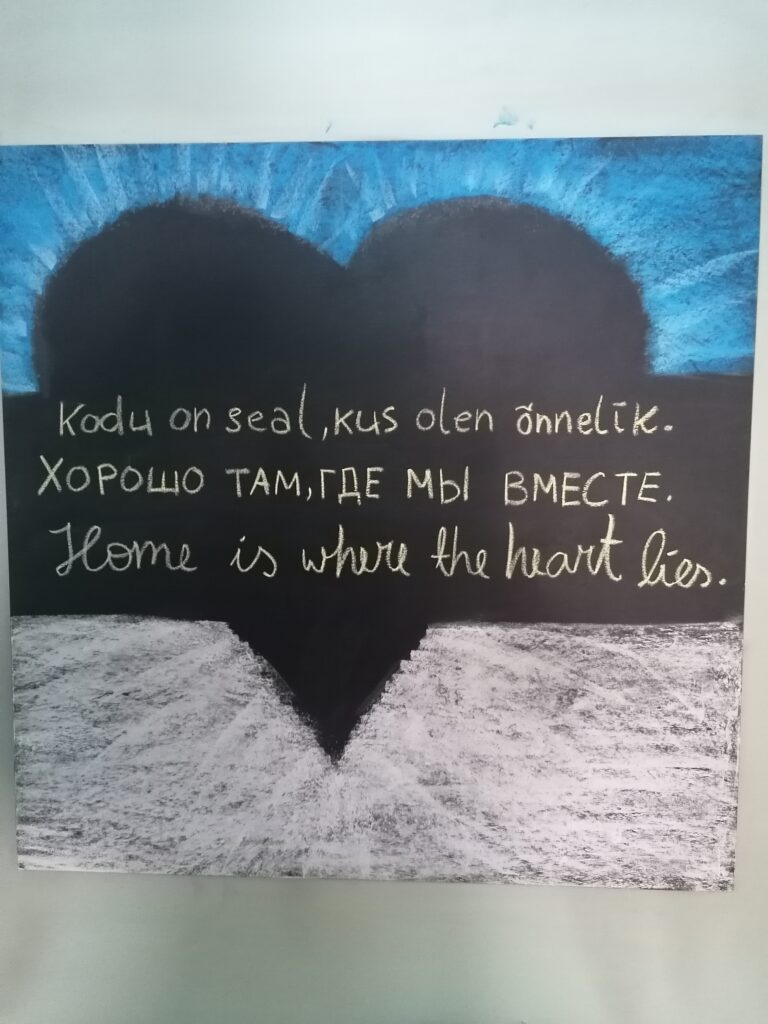 Kodu on seal, kus olen õnnelik.
ХОРОШО ТАМ, ГДЕ МЫ ВМЕСТЕ.
Home is where the heart lies.